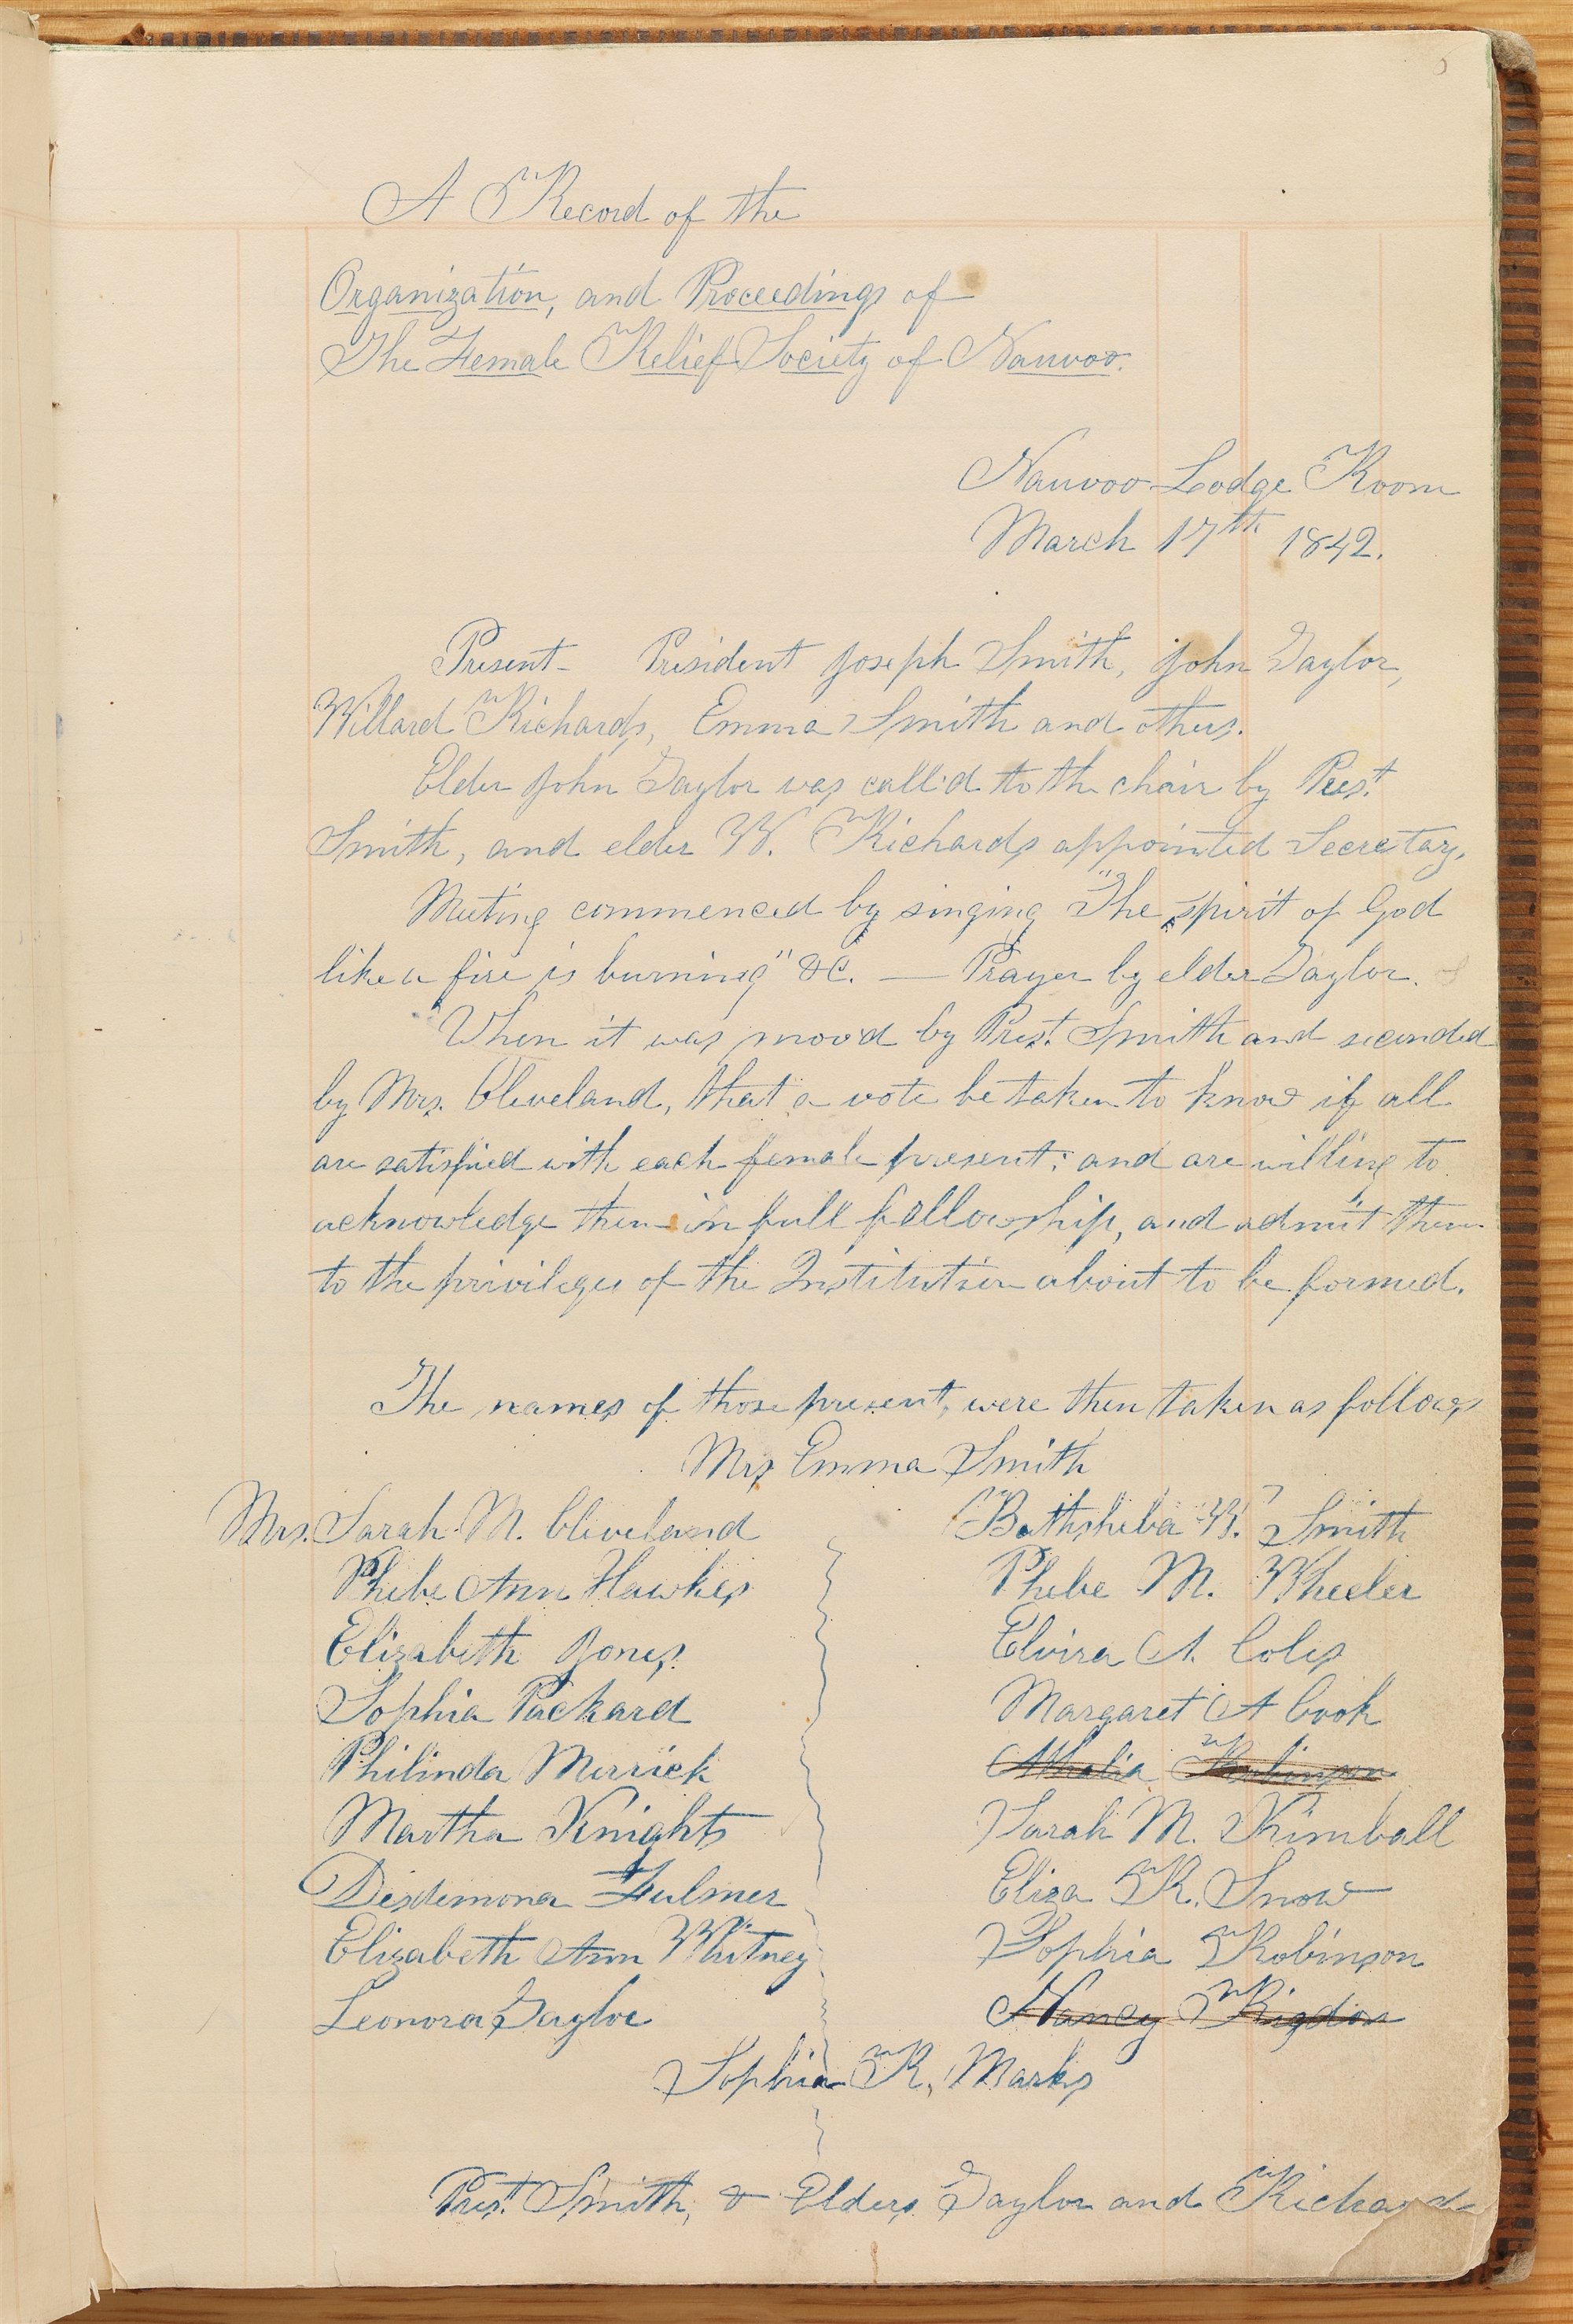 A Record of the
Organization, and Proceedings of
The Female Relief Society of Nauvoo.
Nauvoo Lodge Room
March 17th 1842.
Present – President Joseph Smith, John Taylor,
Willard Richards, Emma Smith and others.
Elder John Taylor was call'd to the chair by Prest.
Smith, and elder W. Richards appointed Secretary.
Meeting commenced by singing "The spirit of God
like a fire is burning" &c. — Prayer by elder Taylor.
When it was mov'd by Prest. Smith and seconded
by Mrs. Cleveland, that a vote be taken to know if all
are satisfied with each female present; and are willing to
acknowledge them in full fellowship, and admit them
to the privileges of the Institution about to be formed.
The names of those present, were then taken as follows
Mrs Emma Smith
Mrs. Sarah M. Cleveland Bathsheba W. Smith
Phebe Ann Hawkes Phebe M. Wheeler
Elizabeth Jones Elvira A. Coles
Sophia Packard Margaret A Cook
Philinda Merrick Athalia Robinson
Martha Knights Sarah M. Kimball
Desdemona Fulmer Eliza R. Snow
Elizabeth Ann Whitney Sophia Robinson
Leonora Taylor Nancy Rigdon
Sophia R. Marks
Prest. Smith, & Elders Taylor and Richards